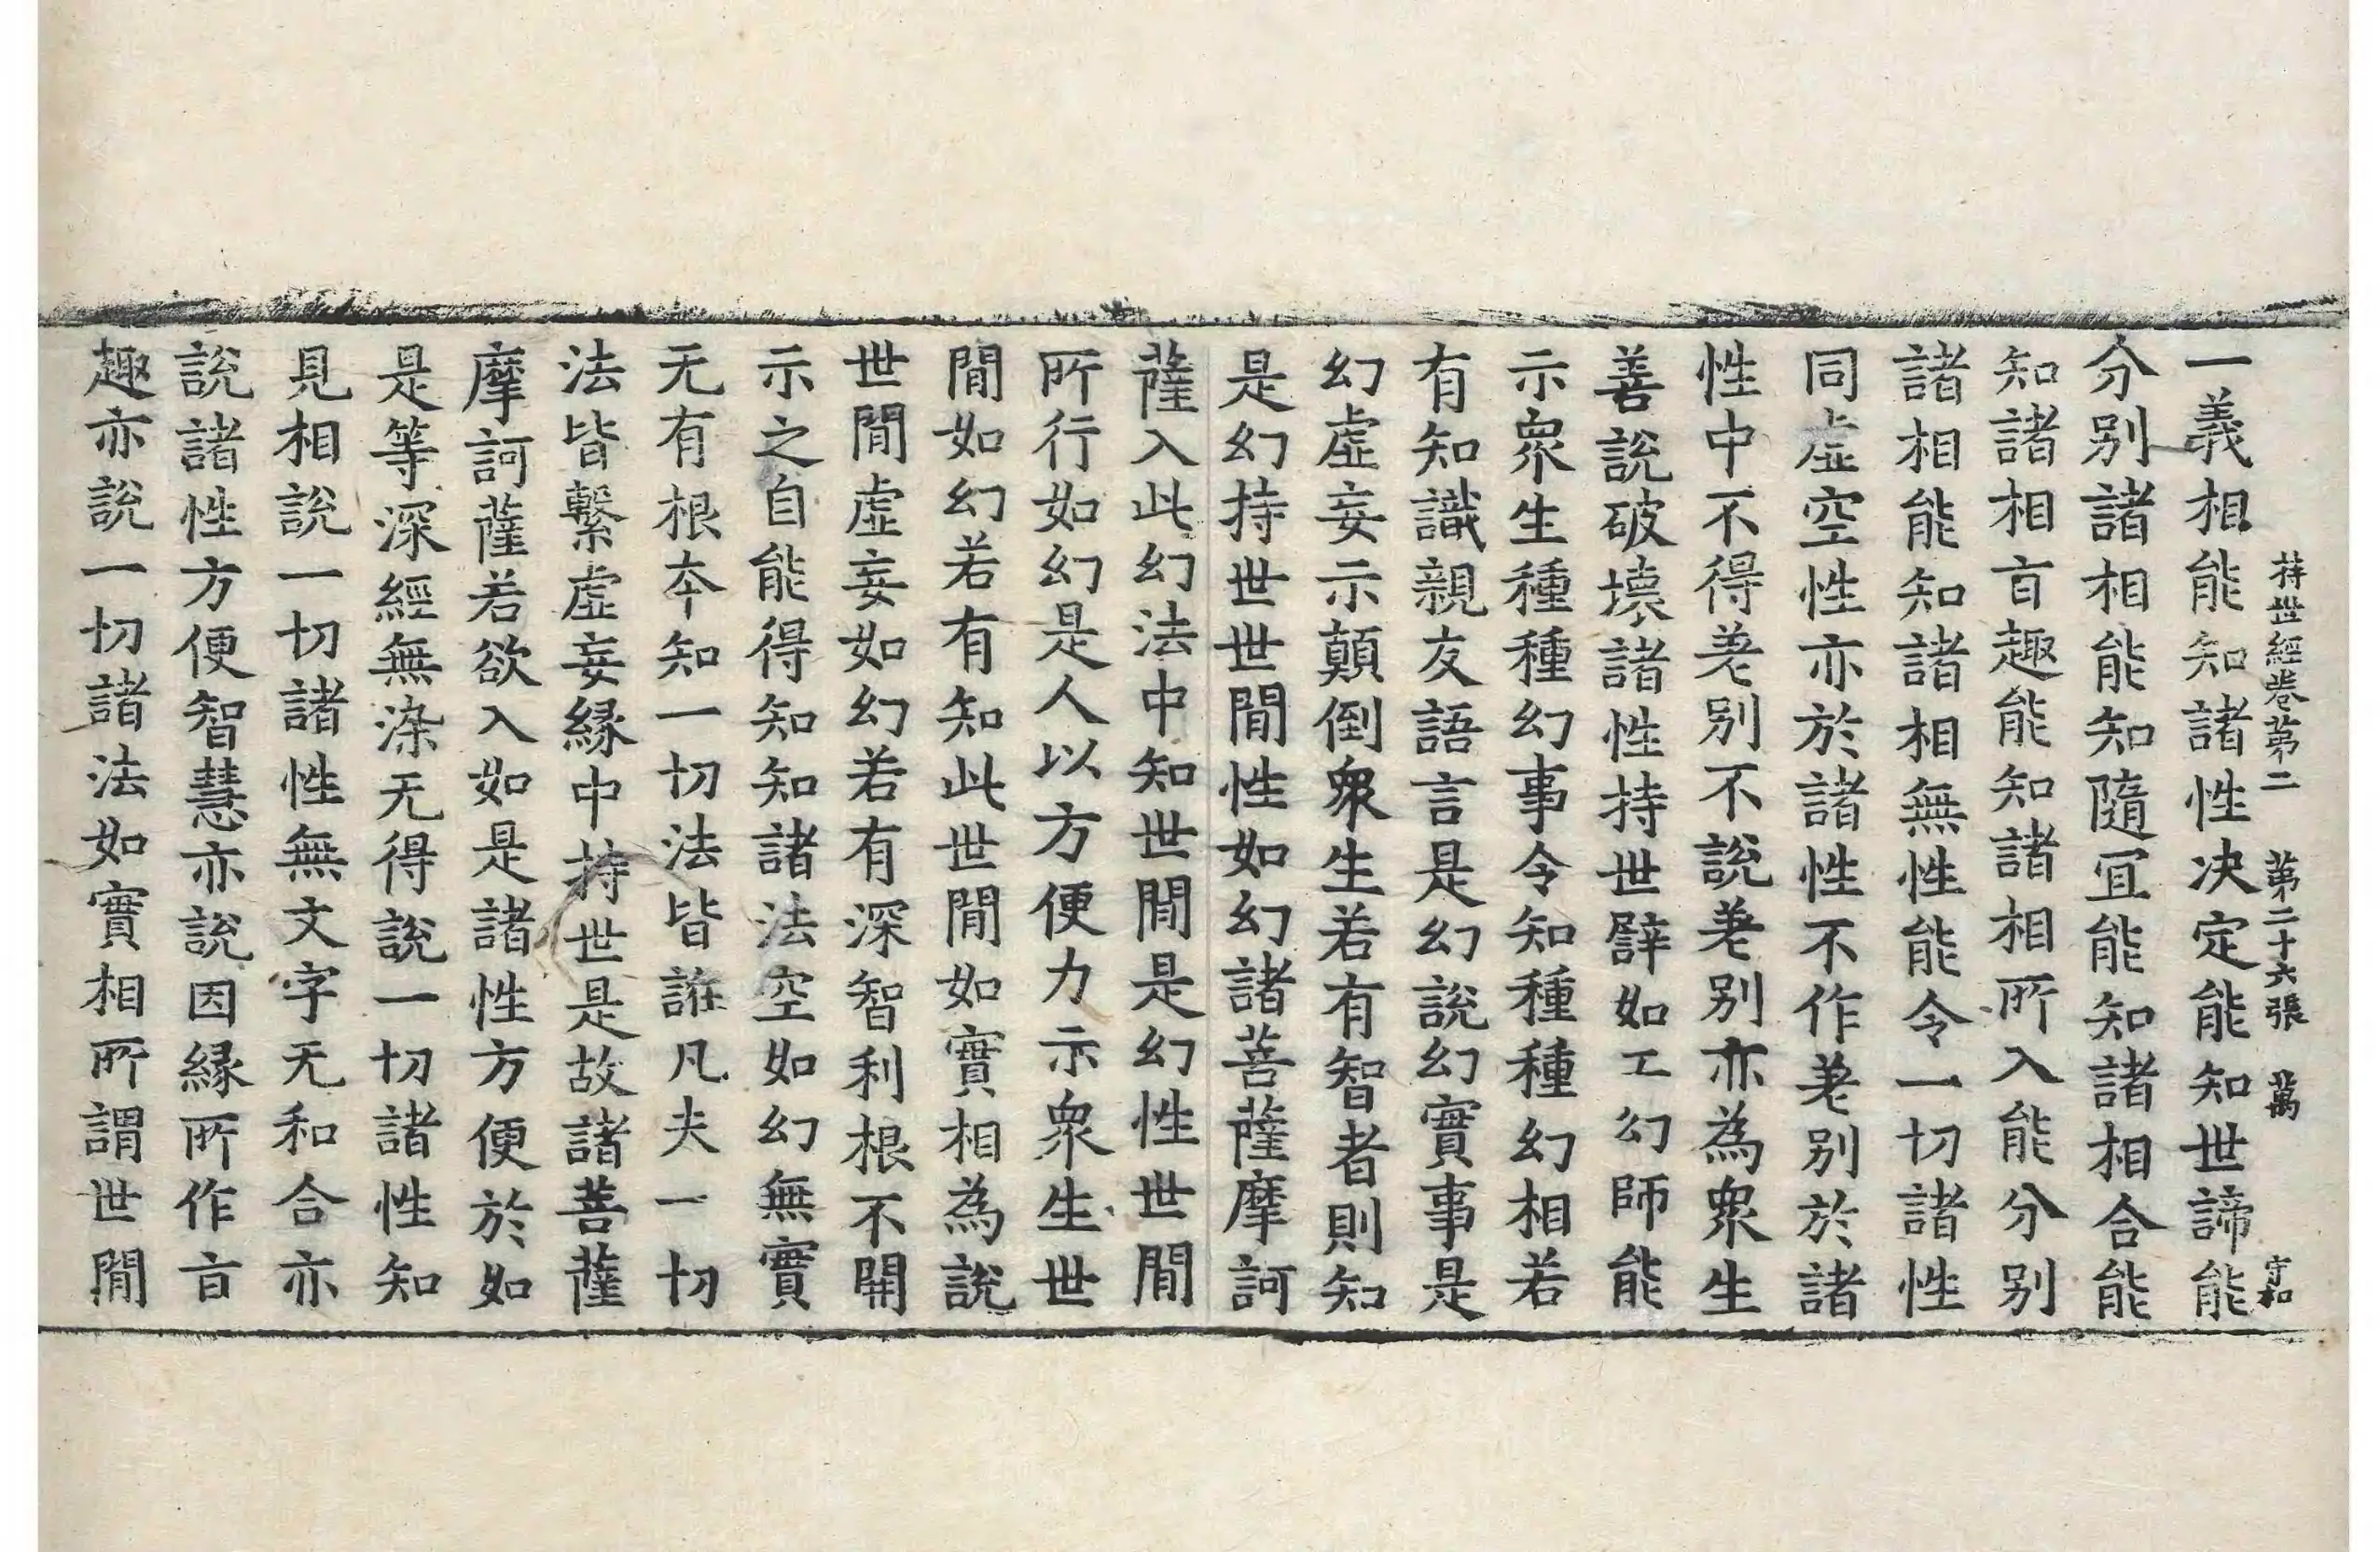 持世經卷第二　第二十六張　萬　守和
一義相能知諸性决定能知世諦能
分別諸相能知隨冝能知諸相合能
知諸相㫖趣能知諸相所入能分別
諸相能知諸相無性能令一切諸性
同虛空性亦於諸性不作差別於諸
性中不得差別不說差別亦為衆生
善說破壞諸性持世譬如工幻師能
示衆生種種幻事令知種種幻相若
有知識親友語言是幻說幻實事是
幻虛妄示顛倒衆生若有智者則知
是幻持世世閒性如幻諸菩薩摩訶
薩入此幻法中知世閒是幻性世閒
所行如幻是人以方便力示衆生世
閒如幻若有知此世閒如實相為說
世閒虛妄如幻若有深智利根不開
示之自能得知知諸法空如幻無實
无有根夲知一切法皆誑凡夫一切
法皆繫虛妄緣中持世是故諸菩薩
摩訶薩若欲入如是諸性方便於如
是等深經無染无得說一切諸性知
見相說一切諸性無文字无和合亦
說諸性方便智慧亦說因緣所作㫖
趣亦說一切諸法如實相所謂世閒